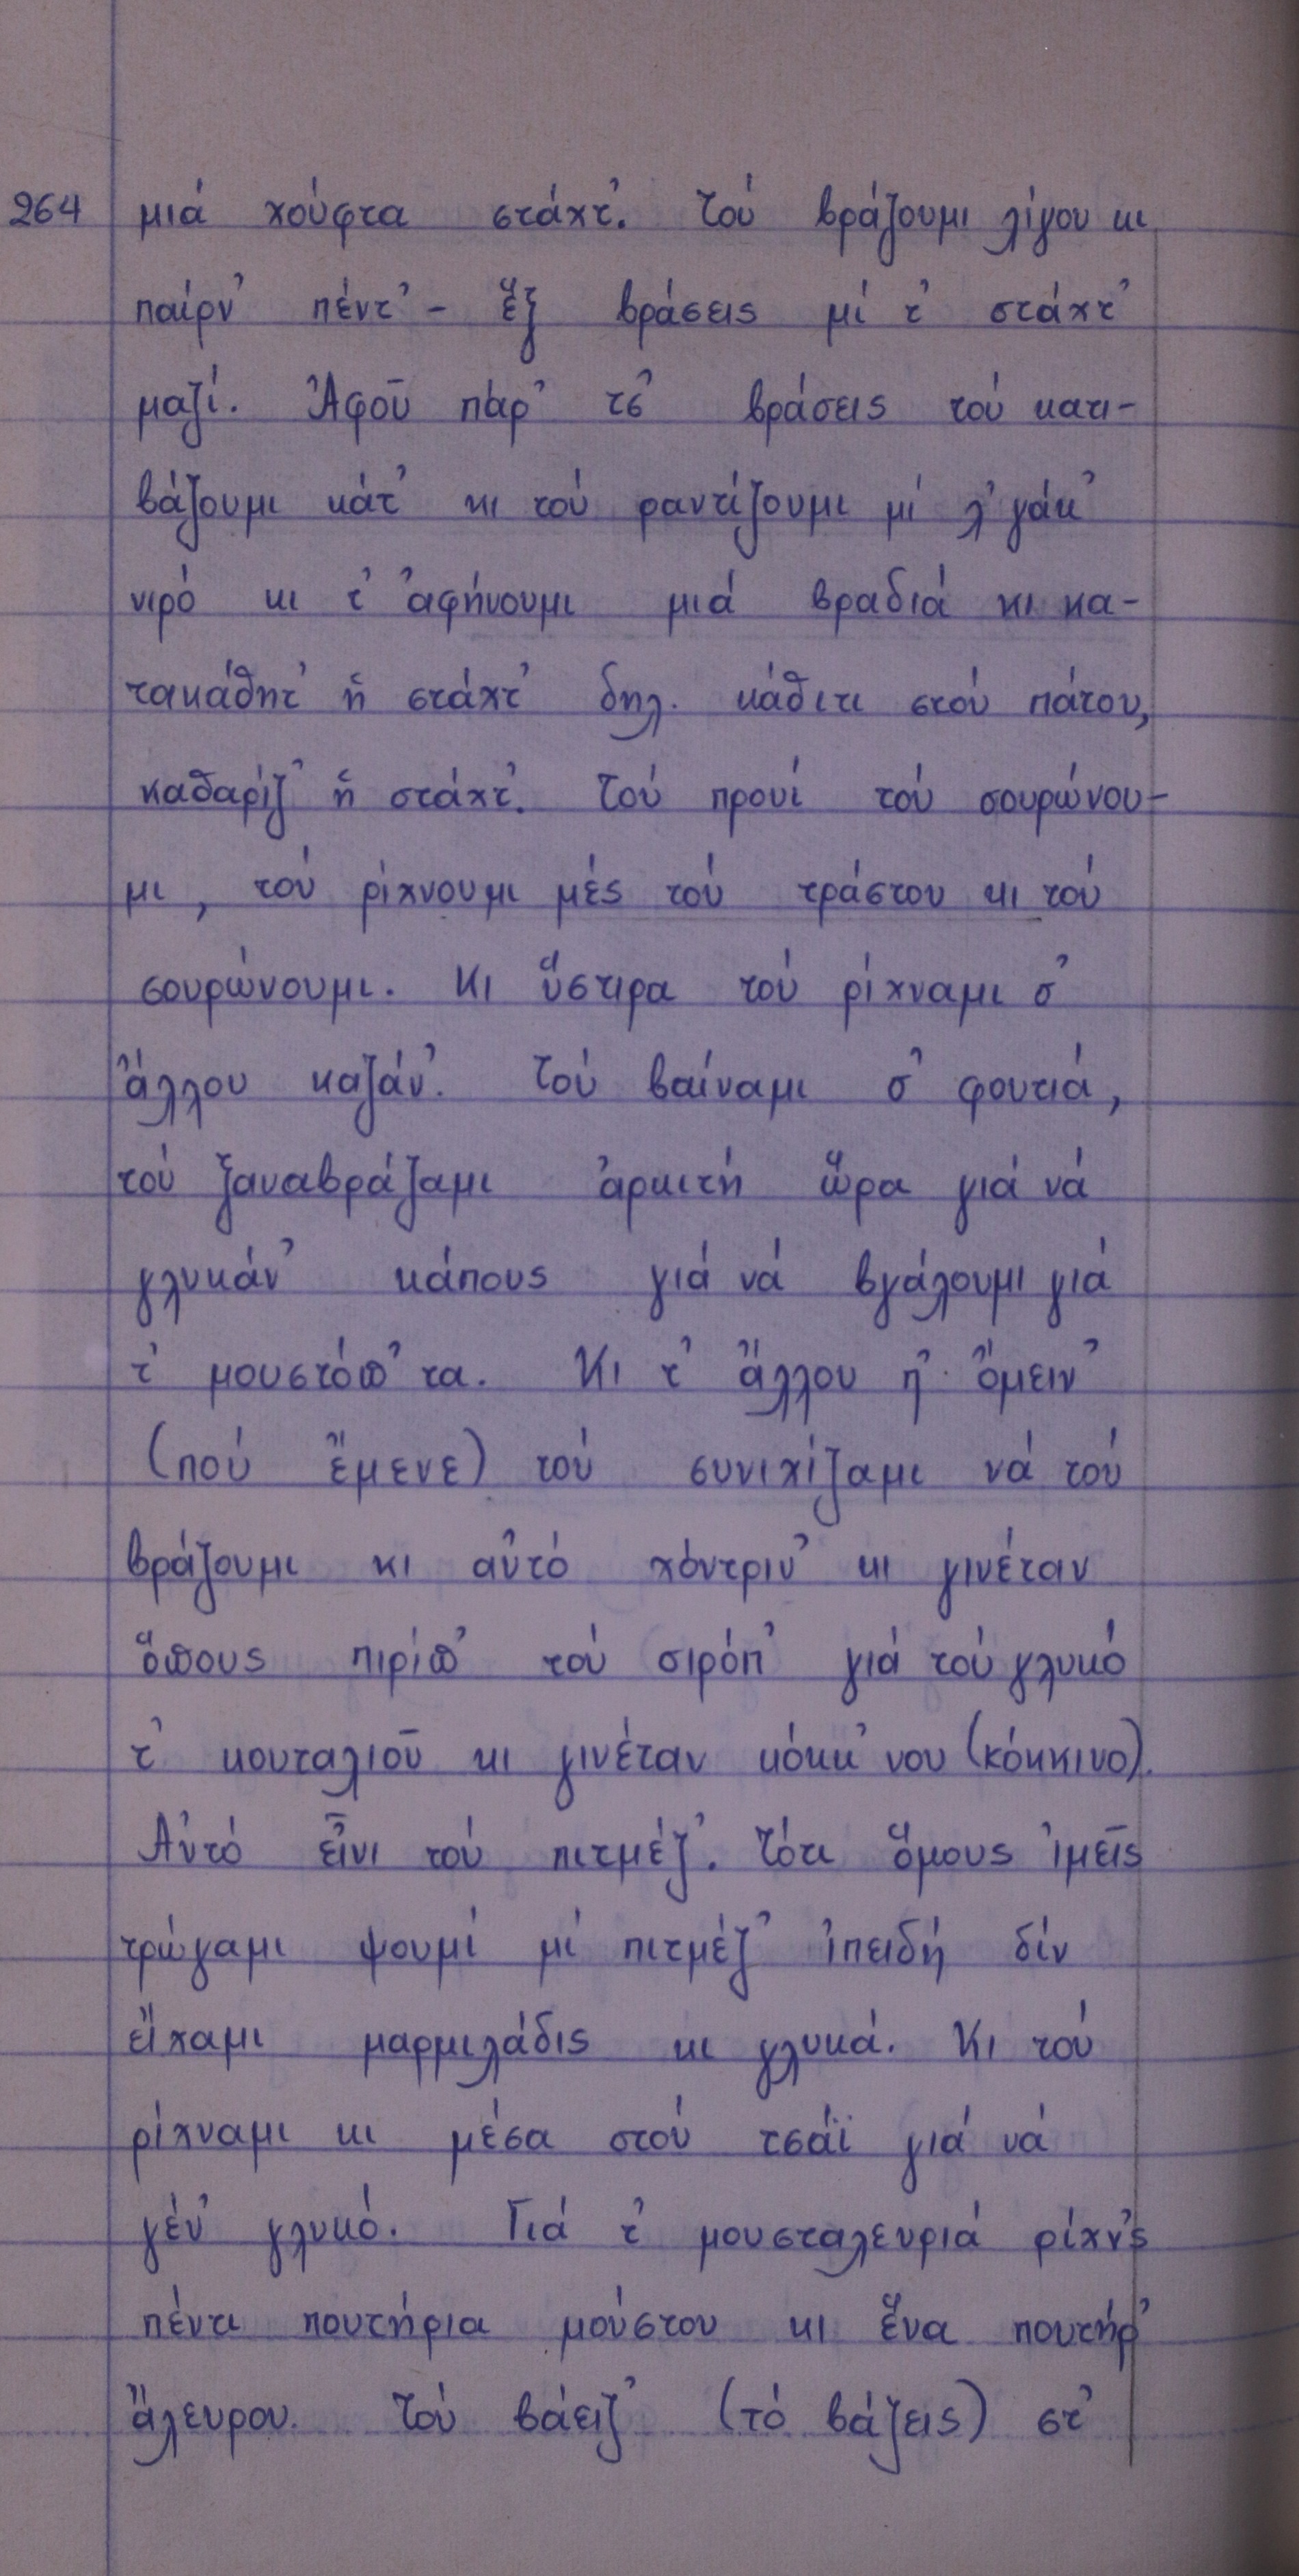 264 μιά χούφτα στάχτ'. Τού βράζουμι λίγου κι
παίρν' πέντ' - ἕξ βράσεις μί τ' στάχτ'
μαζί. Ἀφοῦ πάρ' τσ' βράσεις τού κατι-
βάζουμι κάτ' κι τού ραντίζουμι μί λ'γάκ'
νιρό κι τ' ἀφήνουμι μιά βραδιά κι κα-
τακάθητ' ἡ στάχτ' δηλ. κάθιτι στού πάτου,
καθαρίζ' ἡ στάχτ'. Τού προυί τού σουρώνου-
μι, τού ρίχνουμι μές τού τράστου κι τού
σουρώνουμι. Κι ὕστιρα τού ρίχναμι σ'
ἄλλου καζάν'. Τού βαίναμι σ' φουτιά,
τού ξαναβράζαμι ἀρκιτή ὥρα γιά νά
γλυκάν' κάπους γιά νά βγάλουμι γιά
τ' μουστόπ'τα. Κι τ' ἄλλου π' ὄμειν'
(πού ἔμενε) τού συνιχίζαμι νά τού
βράζουμι κι αὐτό χόντριν' κι γινέταν
ὅπους πιρίπ' τού σιρόπ' γιά τού γλυκό
τ' κουταλιοῦ κι γινέταν κόκκ'νου (κόκκινο).
Αὐτό εἶνι τού πιτμέζ'. Τότι ὅμους ἰμεῖς
τρώγαμι ψουμί μί πιτμέζ' ἰπειδή δίν
εἴχαμι μαρμιλάδις κι γλυκά. Κι τού
ρίχναμι κι μέσα στού τσάϊ γιά νά
γέν' γλυκό. Γιά τ' μουσταλευριά ρίχν'ς
πέντι πουτήρια μούστου κι ἕνα πουτήρ'
ἄλευρου. Τού βάειζ' (τό βάζεις) στ'